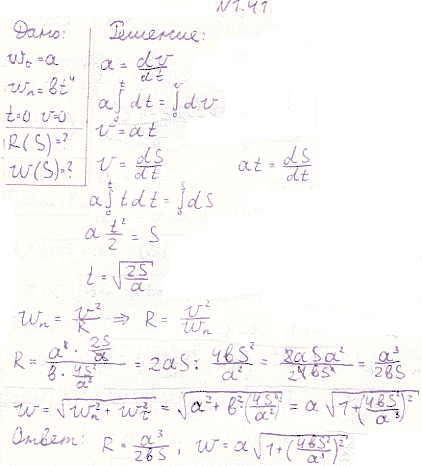 N1.41
Дано: Решение:
wτ = a
wn = bt⁴
t=0 v=0
R(S)=?
w(S)=?
a = dv/dt
a∫₀ᵗ dt = ∫₀ᵛ dv
v = at
v = dS/dt at = dS/dt
a∫₀ᵗ t dt = ∫₀ˢ dS
a t²/2 = S
t = √(2S/a)
wn = v²/R ⇒ R = v²/wn
R = (a² · 2S/a)/(b · 4S²/a²) = 2aS : 4bS²/a² = 2aSa²/24bS² = a³/2bS
w = √(wn² + wτ²) = √(a² + b²(4S²/a²)²) = a√(1+(4bS²/a³)²)
Ответ: R = a³/2bS, w = a√(1+(4bS²/a³)²)